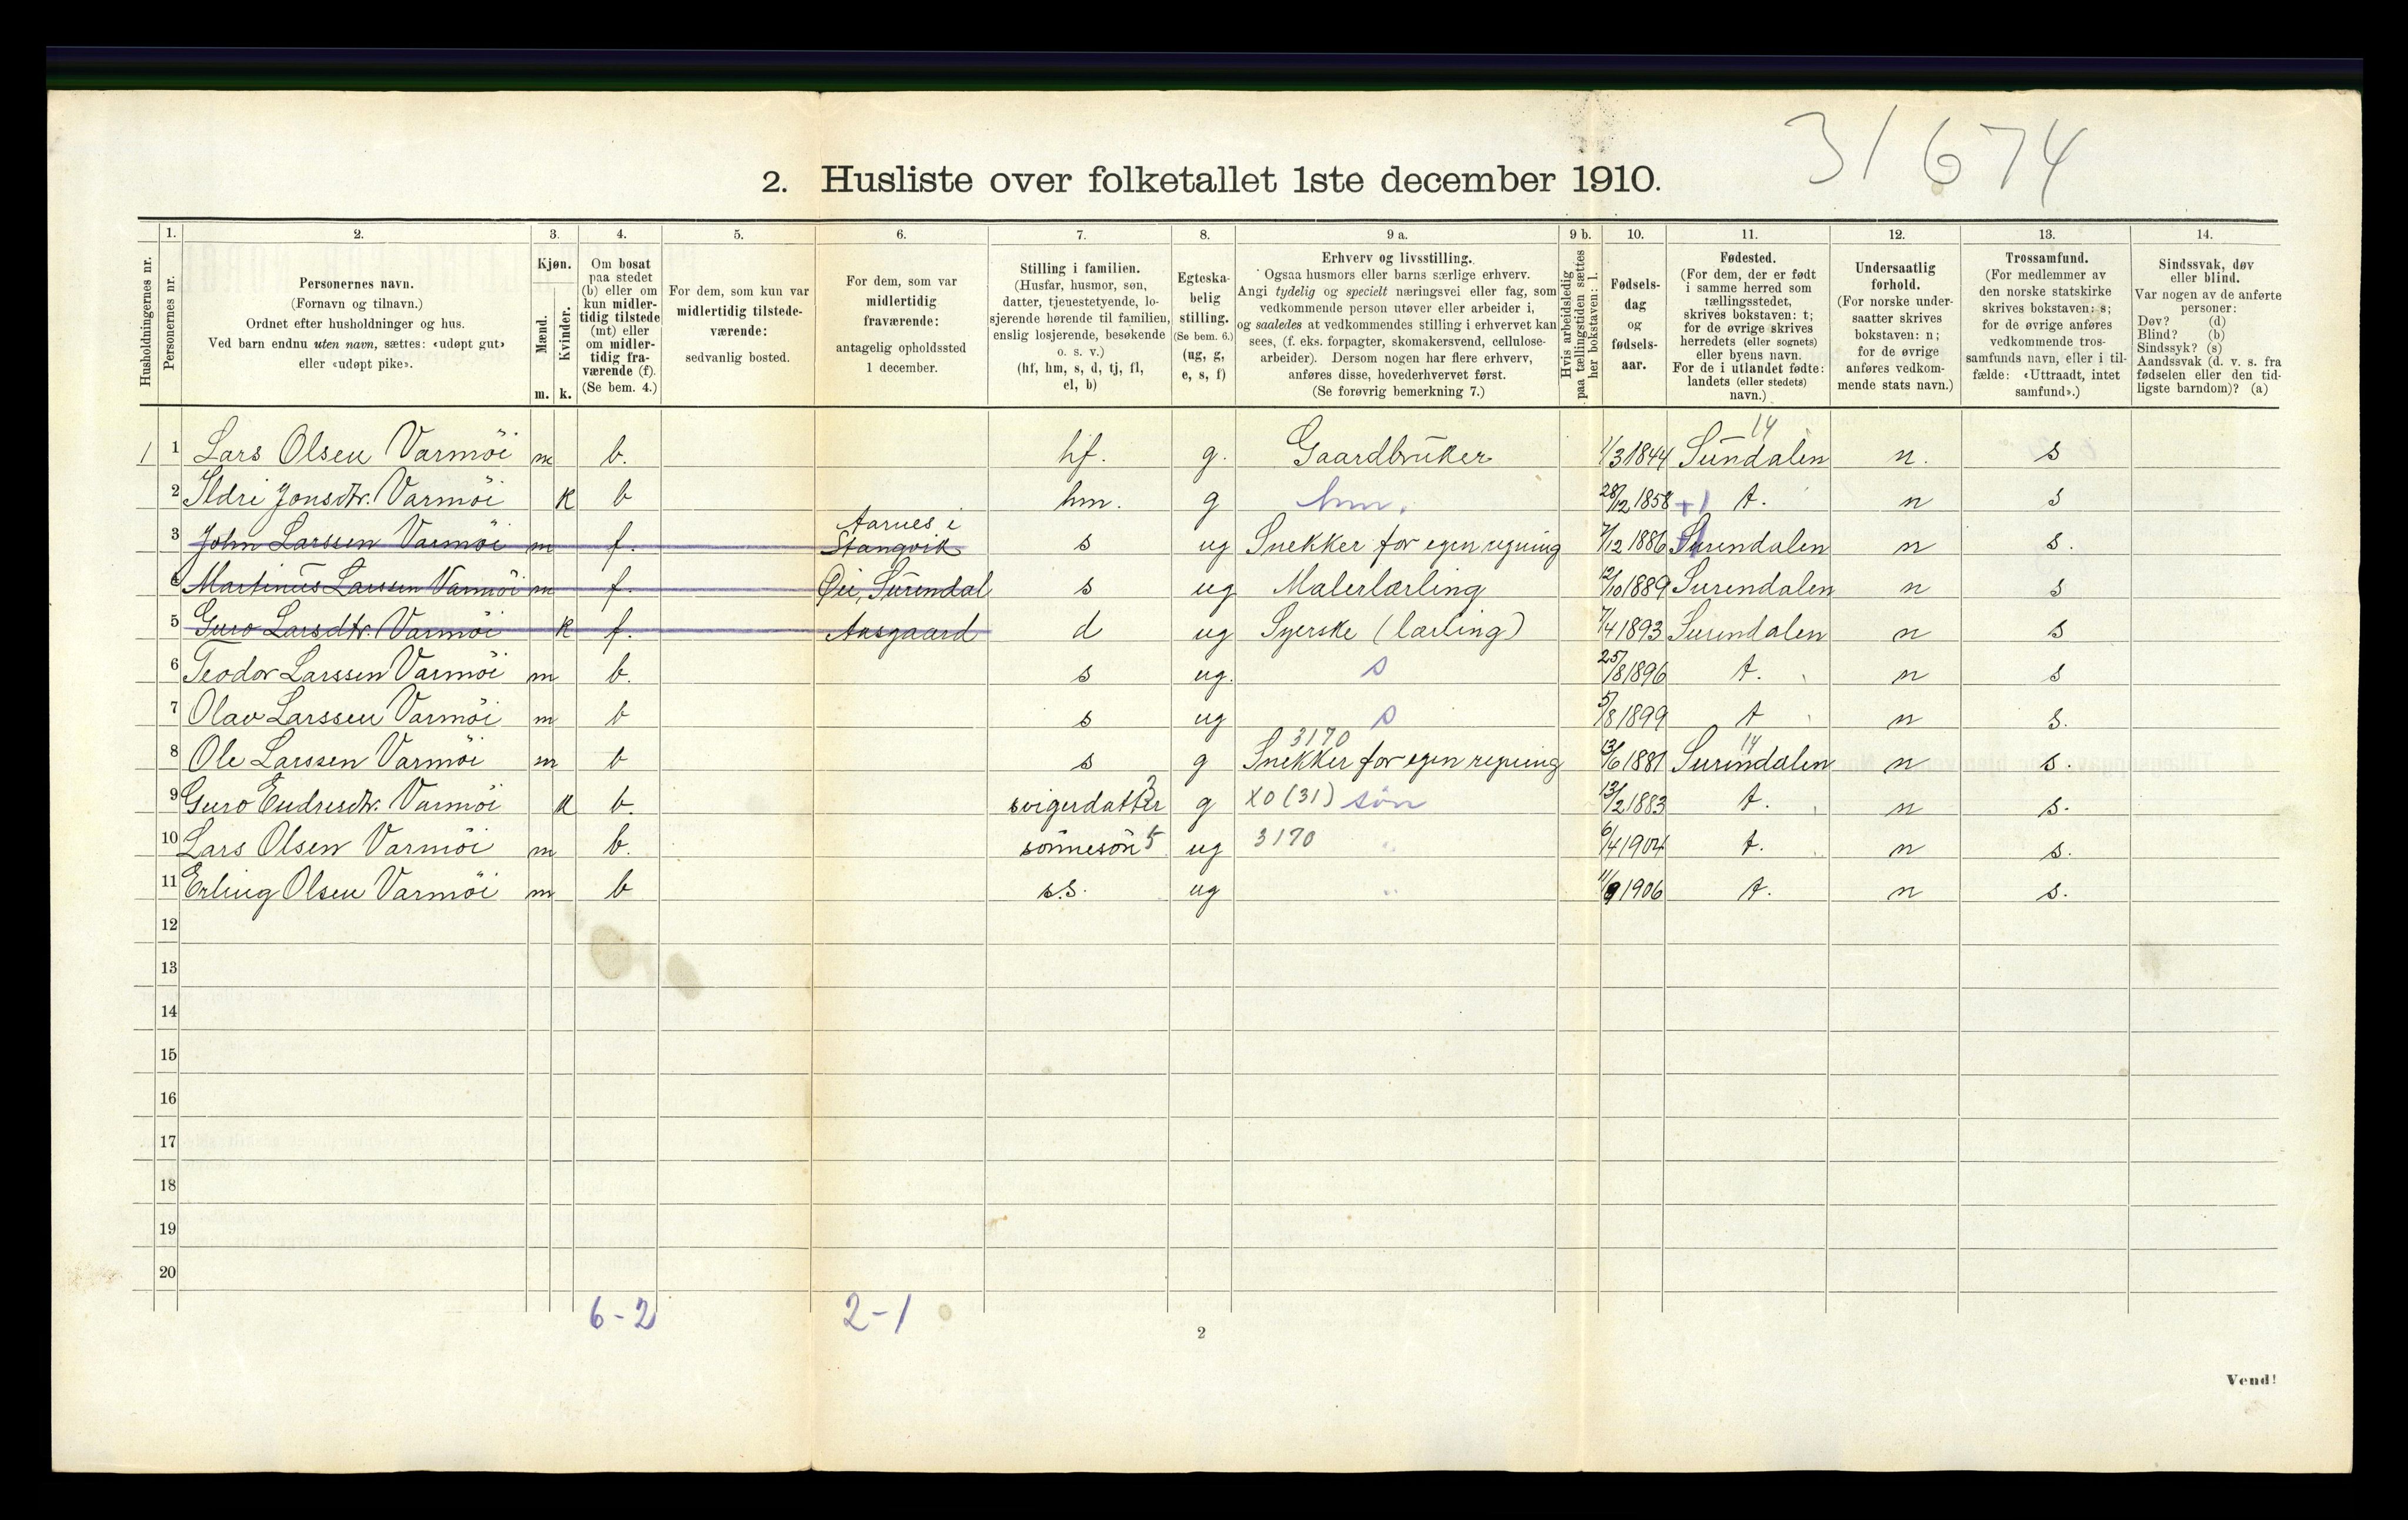 31674
2. Husliste over folketallet 1ste december 1910.
Husholdningernes nr.
1. Personernes nr.
2. Personernes navn. (Fornavn og tilnavn.) Ordnet efter husholdninger og hus. Ved barn endnu uten navn, sættes: «udøpt gut» eller «udøpt pike».
3. Kjøn. Mænd. m. Kvinder. k.
4. Om bosat paa stedet (b) eller om kun midlertidig tilstede (mt) eller om midlertidig fraværende (f). (Se bem. 4.)
5. For dem, som kun var midlertidig tilstedeværende: sedvanlig bosted.
6. For dem, som var midlertidig fraværende: antagelig opholdssted 1 december.
7. Stilling i familien. (Husfar, husmor, søn, datter, tjenestetyende, losjerende hørende til familien, enslig losjerende, besøkende o. s. v.) (hf, hm, s, d, tj, fl, el, b)
8. Egteskabelig stilling. (Se bem. 6.) (ug, g, e, s, f)
9 a. Erhverv og livsstilling. Ogsaa husmors eller barns særlige erhverv. Angi tydelig og specielt næringsvei eller fag, som vedkommende person utøver eller arbeider i, og saaledes at vedkommendes stilling i erhvervet kan sees, (f. eks. forpagter, skomakersvend, cellulosearbeider). Dersom nogen har flere erhverv, anføres disse, hovederhvervet først. (Se forøvrig bemerkning 7.)
9 b. Hvis arbeidsledig paa tællingstiden sættes her bokstaven: l.
10. Fødselsdag og fødselsaar.
11. Fødested. (For dem, der er født i samme herred som tællingsstedet, skrives bokstaven: t; for de øvrige skrives herredets (eller sognets) eller byens navn. For de i utlandet fødte: landets (eller stedets) navn.)
12. Undersaatlig forhold. (For norske undersaatter skrives bokstaven: n; for de øvrige anføres vedkommende stats navn.)
13. Trossamfund. (For medlemmer av den norske statskirke skrives bokstaven: s; for de øvrige anføres vedkommende trossamfunds navn, eller i tilfælde: «Uttraadt, intet samfund».)
14. Sindssvak, døv eller blind. Var nogen av de anførte personer: Døv? (d) Blind? (b) Sindssyk? (s) Aandssvak (d. v. s. fra fødselen eller den tidligste barndom)? (a)
1 1 Lars Olsen Varmöi m b. hf. g. Gaardbruker 1/3 1844 Sundalen 14 n. s
2 Ildri Jonsdtr. Varmöi k b hm. g hm. 28/12 1858 +1 t. n s
3 John Larssen Varmöi m f. Aarnes i Stangvik s ug Snekker for egen regning 7/12 1886 Surendalen n s.
4 Martinus Larssen Varmöi m f. Øie, Surendal s ug Malerlærling 12/10 1889 Surendalen n s
5 Guro Larsdtr. Varmöi k f. Aasgaard d ug Syerske (lærling) 7/4 1893 Surendalen n s
6 Teodor Larssen Varmöi m b. s ug. s 25/8 1896 t. n s
7 Olav Larssen Varmöi m b s ug s 5/8 1899 t n s.
8 Ole Larssen Varmöi m b s g 3170 Snekker for egen regning 13/6 1881 Surendalen 14 n s.
9 Guro Endresdtr. Varmöi k b. svigerdatter g XO (31) søn 13/2 1883 t. n s.
10 Lars Olsen Varmöi m b. sönnesön 5 ug 3170 6/4 1904 t. n s.
11 Erling Olsen Varmöi m b s.s. ug " 11/9 1906 t. n s.
12
13
14
15
16
17
18
19
20
6-2 2-1
2
Vend!